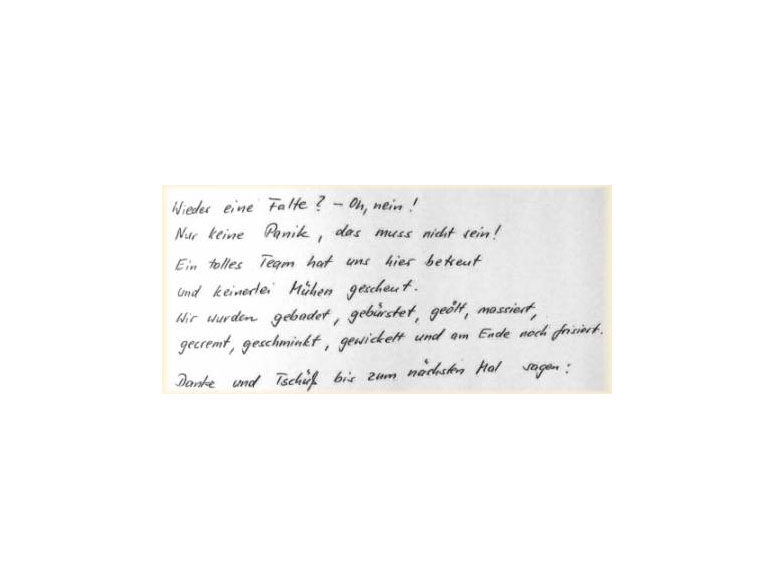 Wieder eine Falte? – Oh, nein!
Nur keine Panik, das muss nicht sein!
Ein tolles Team hat uns hier betreut
und keinerlei Mühen gescheut.
Wir wurden gebadet, gebürstet, geölt, massiert,
gecremt, geschminkt, gewickelt und am Ende noch frisiert.
Danke und Tschüß bis zum nächsten Mal sagen: